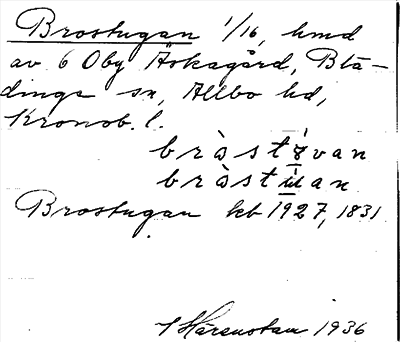 Brostugan 1/16, hmd
av 6 Oby Äskagård, Blä-
dinge sn, Allbo hd,
Kronob. l.
bròstøvan
bròstu̇an
Brostugan kb 1927, 1831
Härenstam 1936